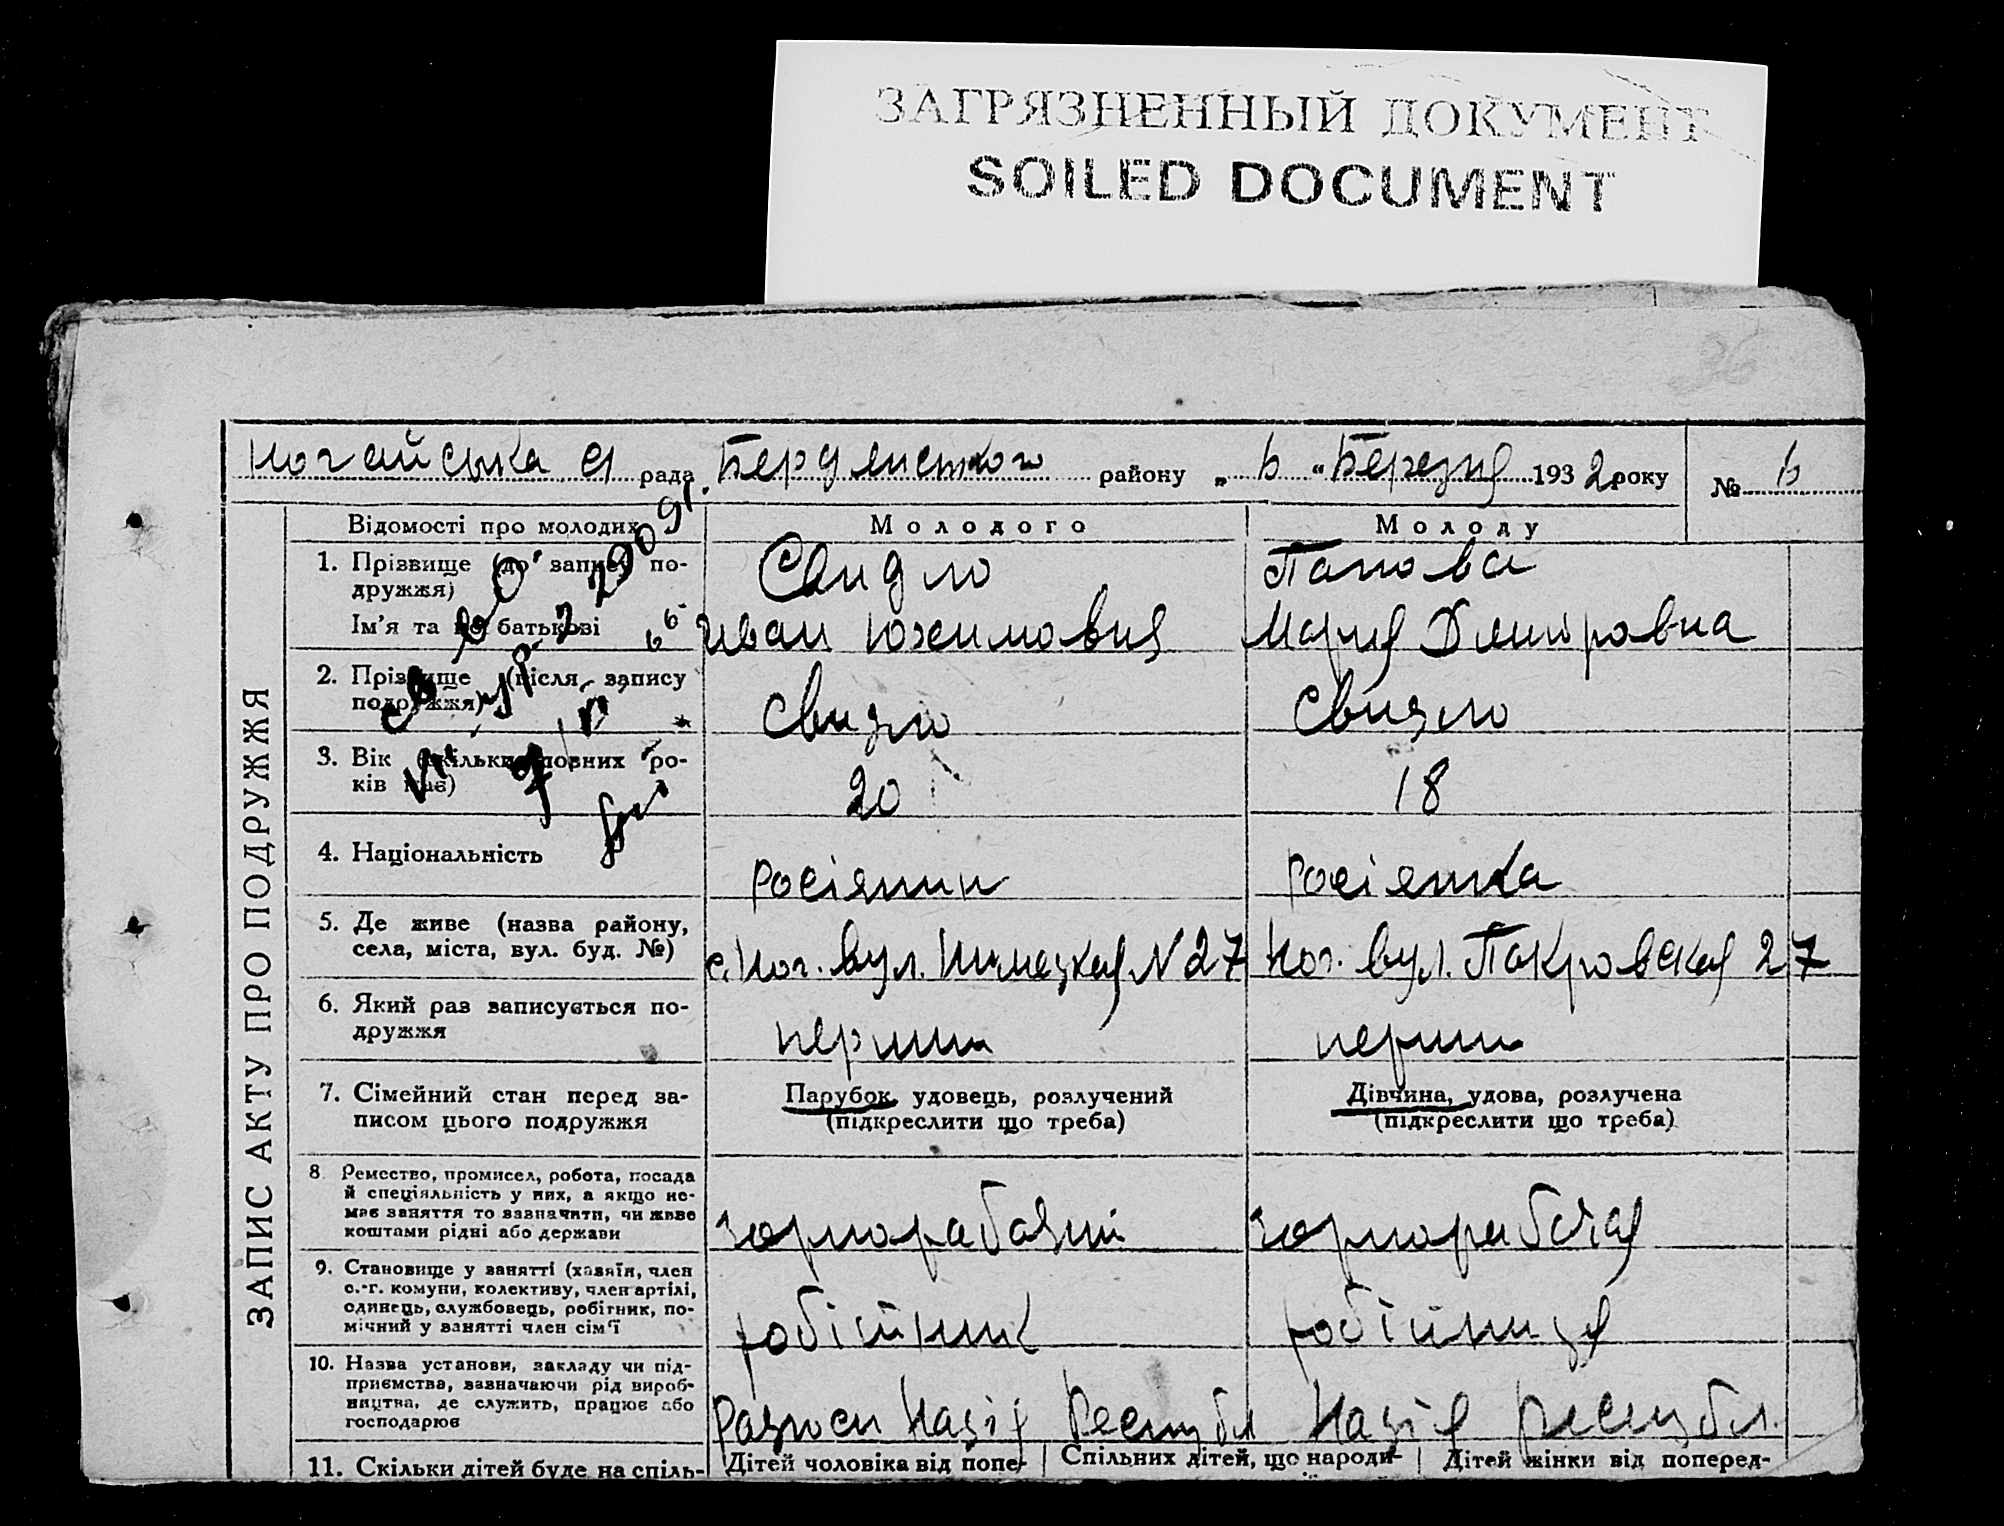 ЗАГРЯЗНЕННЫЙ ДОКУМЕНТ
SOILED DOCUMENT
36
Ногайська я рада Бердянського району „ 6 “ Березня 1932 року № 6
ЗАПИС АКТУ ПРО ПОДРУЖЖЯ
Відомості про молодих Молодого Молоду
1. Прізвище (до запису по-
дружжя)
Свидло Панова
Ім'я та по батькові
Иван Юхимович Мария Дмитровна
2. Прізвище (після запису
подружжя)
Свидло Свидло
3. Вік (скільки повних ро-
ків має)
20 18
4. Національність
росіянин росіянка
5. Де живе (назва району,
села, міста, вул. буд. №)
с. Ног. вул. N 27 Ног. вул. Покровская 27
6. Який раз записується по-
дружжя
перший перший
7. Сімейний стан перед за-
писом цього подружжя
Парубок, удовець, розлучений
(підкреслити що треба)
Дівчина, удова, розлучена
(підкреслити що треба)
8. Ремество, промисел, робота, посада
й спеціяльність у них, а якщо не-
має заняття то зазначити, чи живе
коштами рідні або держави
чорнорабочий чорнорабочая
9. Становище у занятті (хазяїн, член
с.-г. комуни, колективу, член артілі,
одинець, службовець, робітник, по-
мічний у занятті член сім'ї
робітник робітниця
10. Назва установи, закладу чи під-
приємства, зазначаючи рід вироб-
ництва, де служить, працює або
господарює
11. Скільки дітей буде на спіль-
Дітей чоловіка від попе- Спільних дітей, що народи- Дітей жінки від поперед-